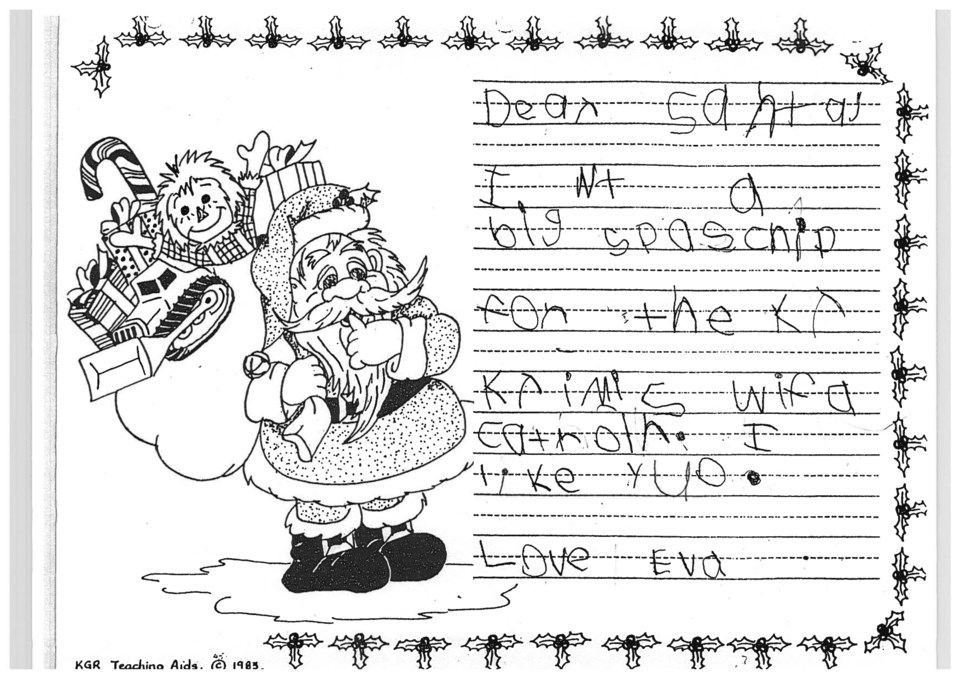 Dear Santa
I Wt a
big spaschip
for the Kr
Krimis wifa
catroln. I
like yuo.
Love Eva
KGR Teaching Aids. © 1983.